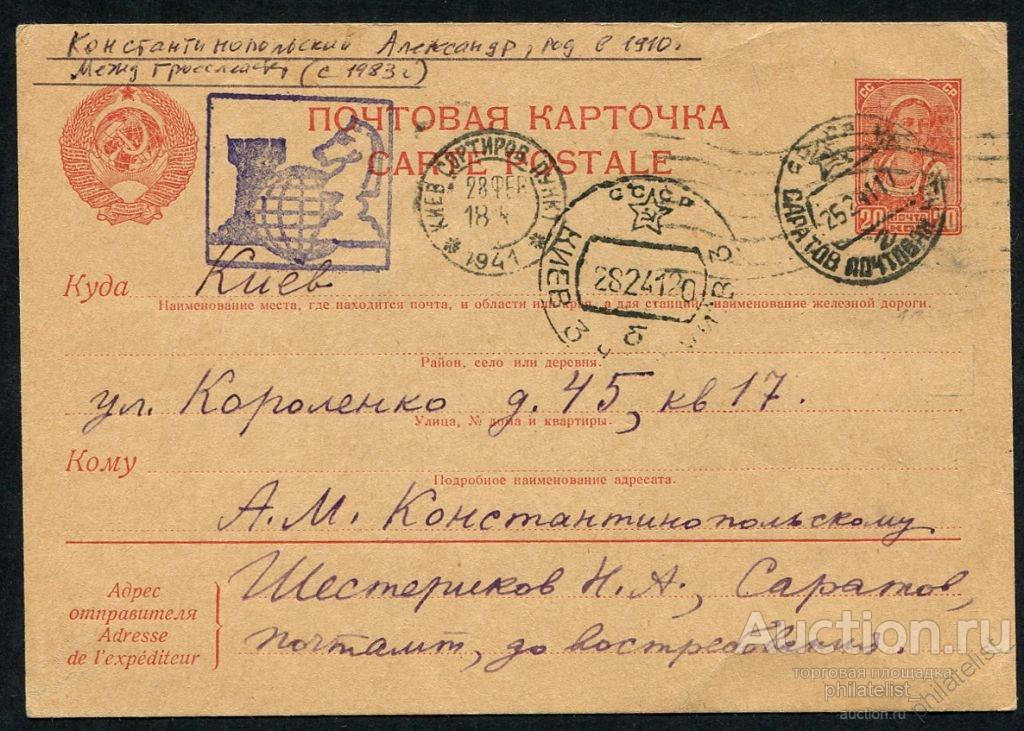 Константинопольский Александр, род в 1910г
Межд гроссмейст (с 1983г)
ПОЧТОВАЯ КАРТОЧКА
CARTE POSTALE
СС СР
20 ПОЧТА 20
КИЕВ СОРТИРОВ. ПУНКТ
28 ФЕВ
18
1941
СССР
КИЕВ 3
2824120
КИЇВ 3
САРАТОВ ПОЧТАМТ
Куда
Киев
Наименование места, где находится почта, и области или края, а для станций наименование железной дороги.
Район, село или деревня.
ул. Короленко д. 45, кв 17.
Улица, № дома и квартиры.
Кому
Подробное наименование адресата.
А. М. Константинопольскому
Адрес
отправителя
Adresse
de l'expéditeur
Шестериков Н. А., Саратов,
почтамт, до востребования.
Auction.ru
торговая площадка
philatelist_
auction.ru
philatelist